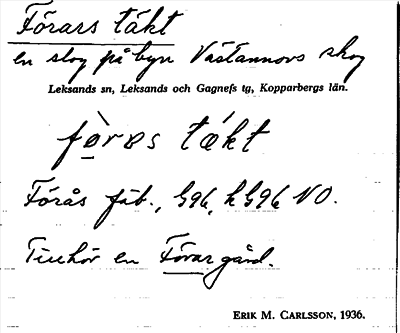 Förars täkt
en skog på byn Västannors skog
Leksands sn, Leksands och Gagnefs tg, Kopparbergs län.
Förås fäb., h G96 NO.
Tillhör en Förar gård.
ERIK M. CARLSSON, 1936.